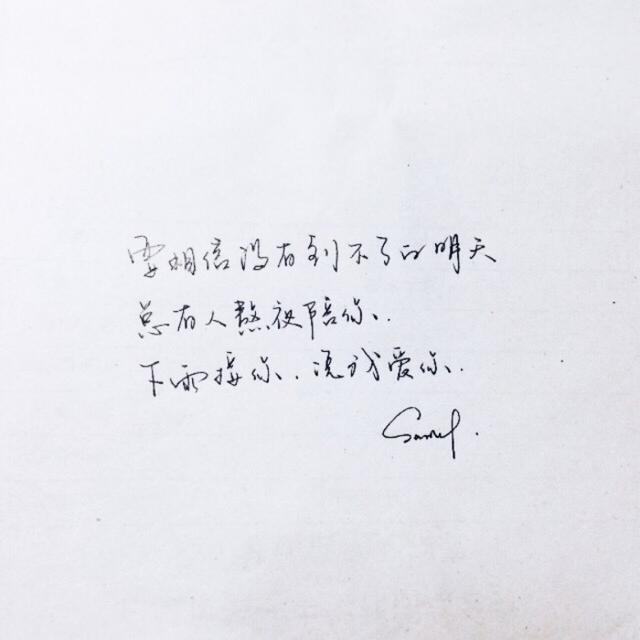 要相信没有到不了的明天
总有人熬夜陪你、.
下雨接你、.说我爱你、.